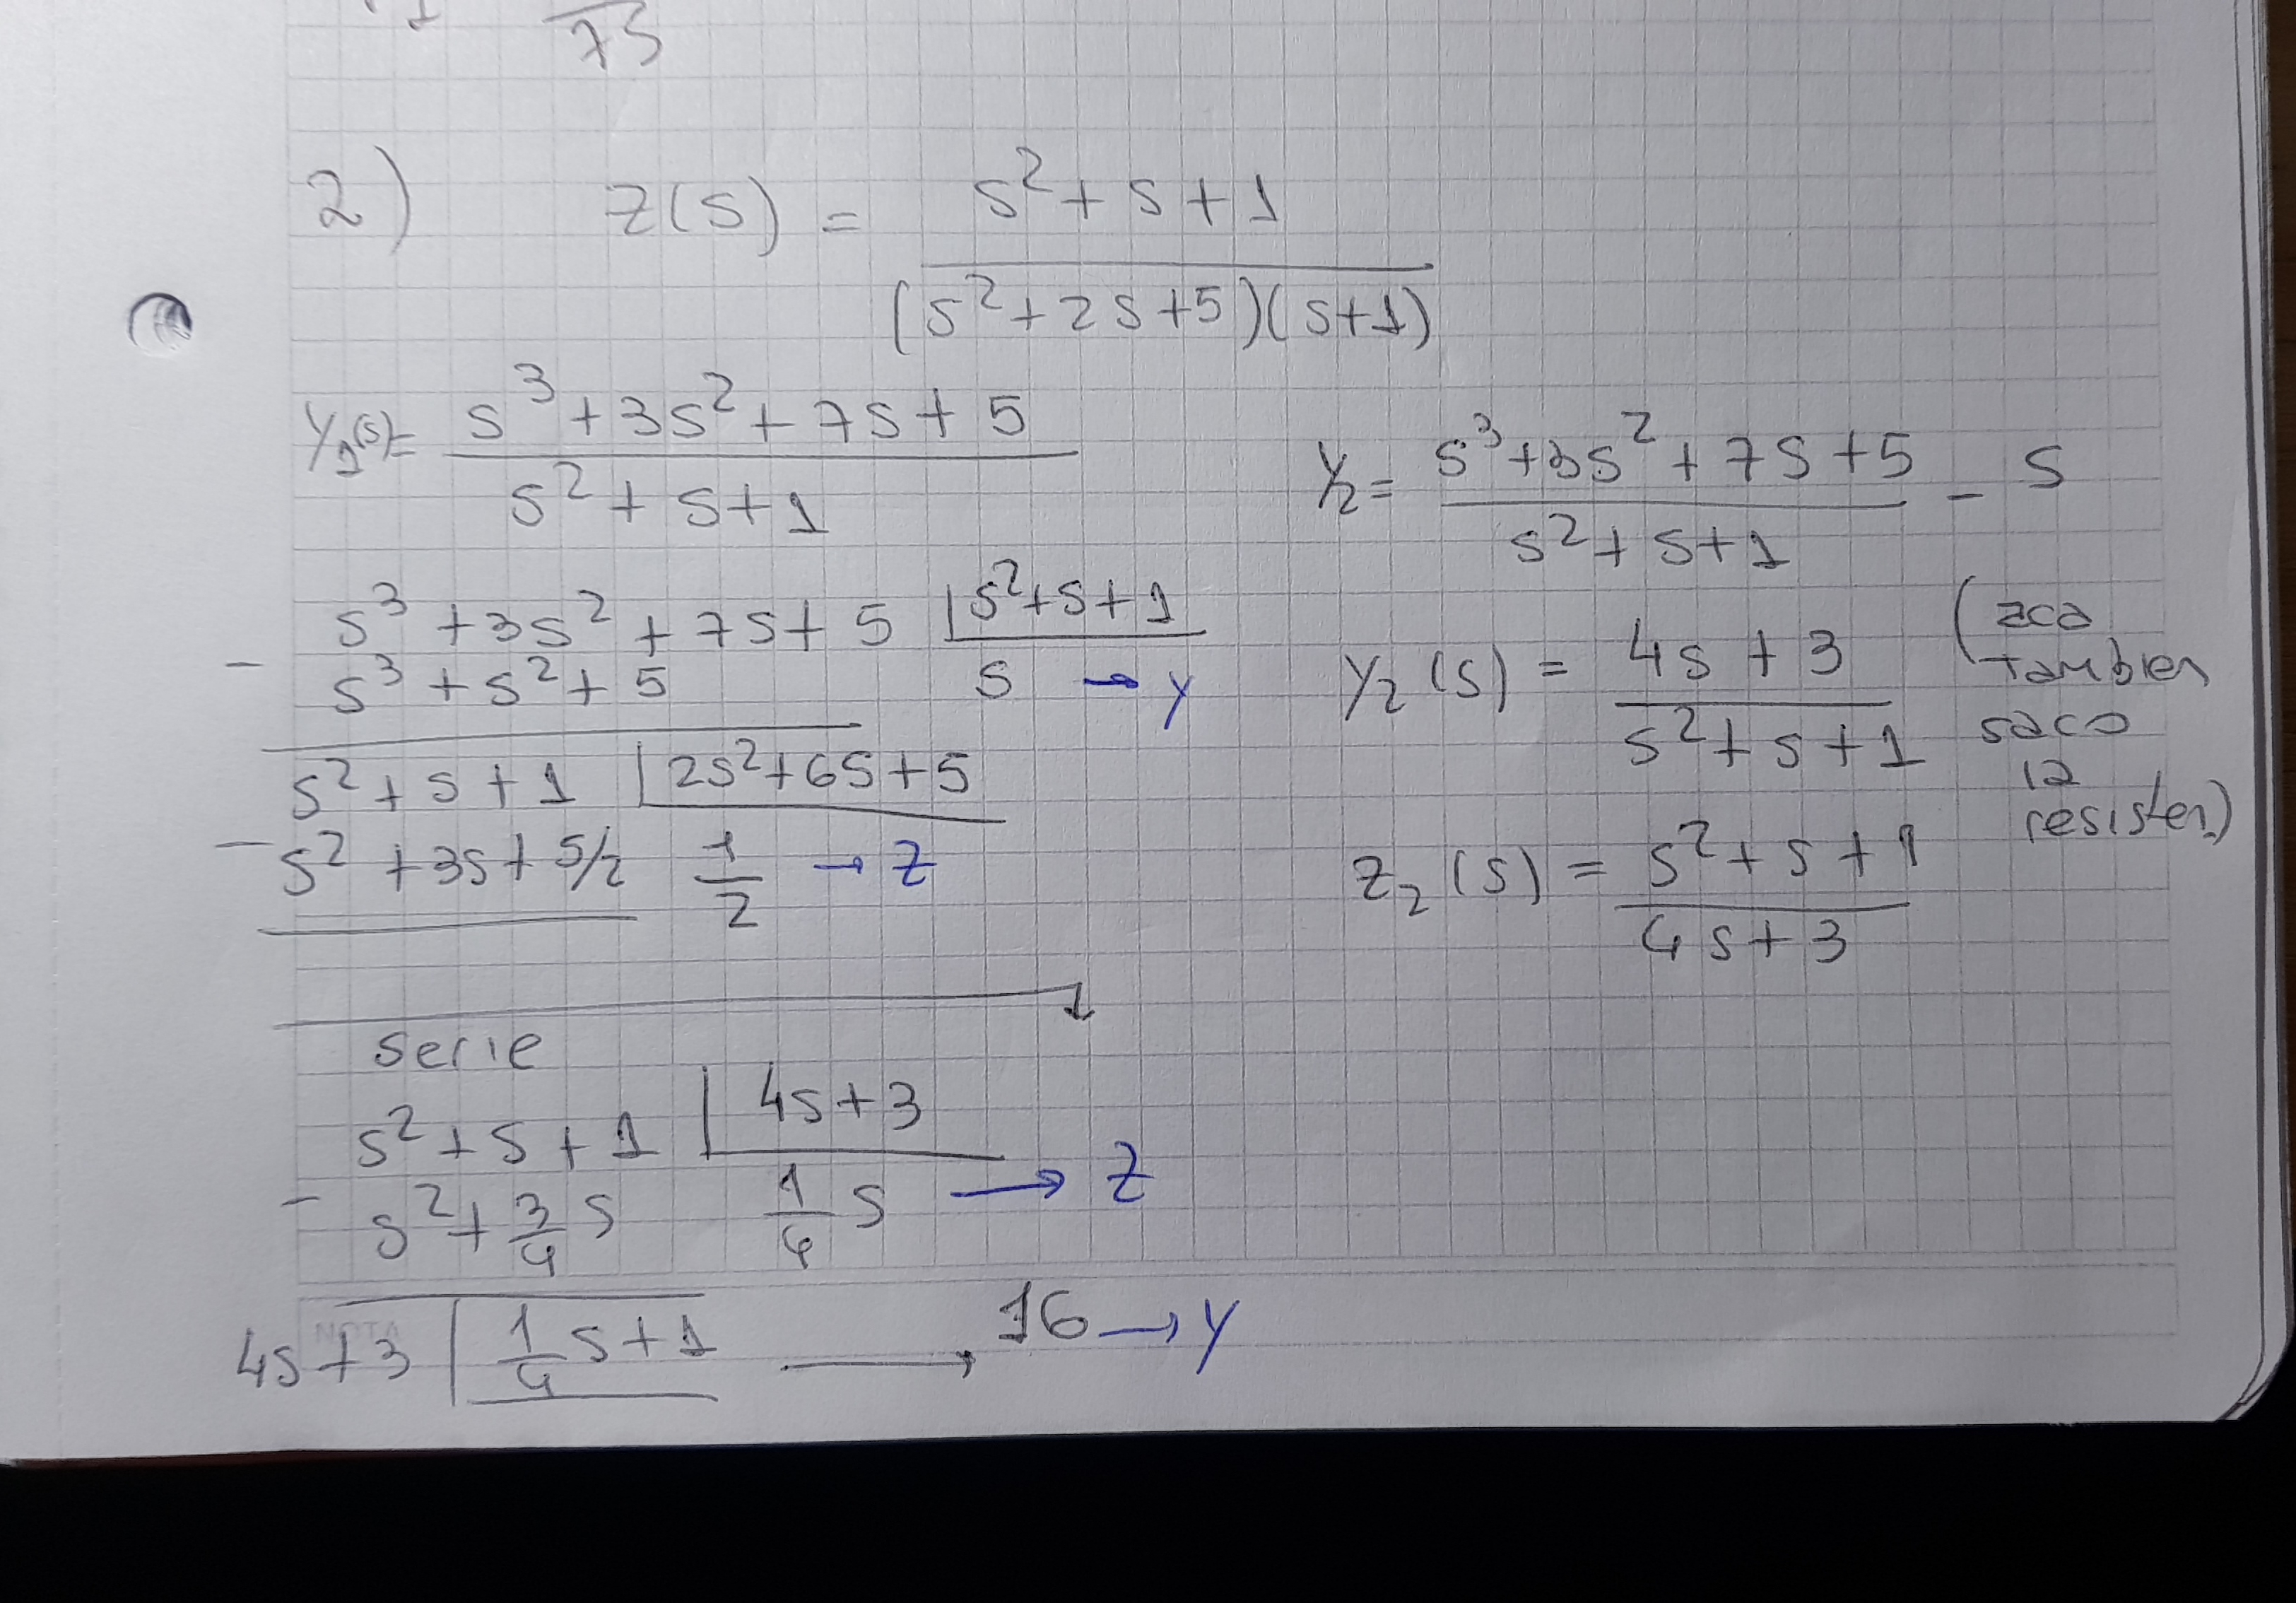 75
2) Z(s) = s² + s + 1
(s² + 2s + 5)(s + 1)
Y₁(s) = s³ + 3s² + 7s + 5
s² + s + 1
s³ + 3s² + 7s + 5 | s² + s + 1
- s³ + s² + 5
s → Y
s² + s + 1 | 2s² + 6s + 5
- s² + 3s + 5/2
1/2 → Z
serie
s² + s + 1 | 4s + 3
- s² + 3/4 s
1/4 s → Z
NOTA
4s + 3 | 1/4 s + 1 → 16 → Y
Y₂ = s³ + 3s² + 7s + 5 - s
s² + s + 1
Y₂(s) = 4s + 3
s² + s + 1
(aca
tambien
saco
la
resisten.)
Z₂(s) = s² + s + 1
4s + 3